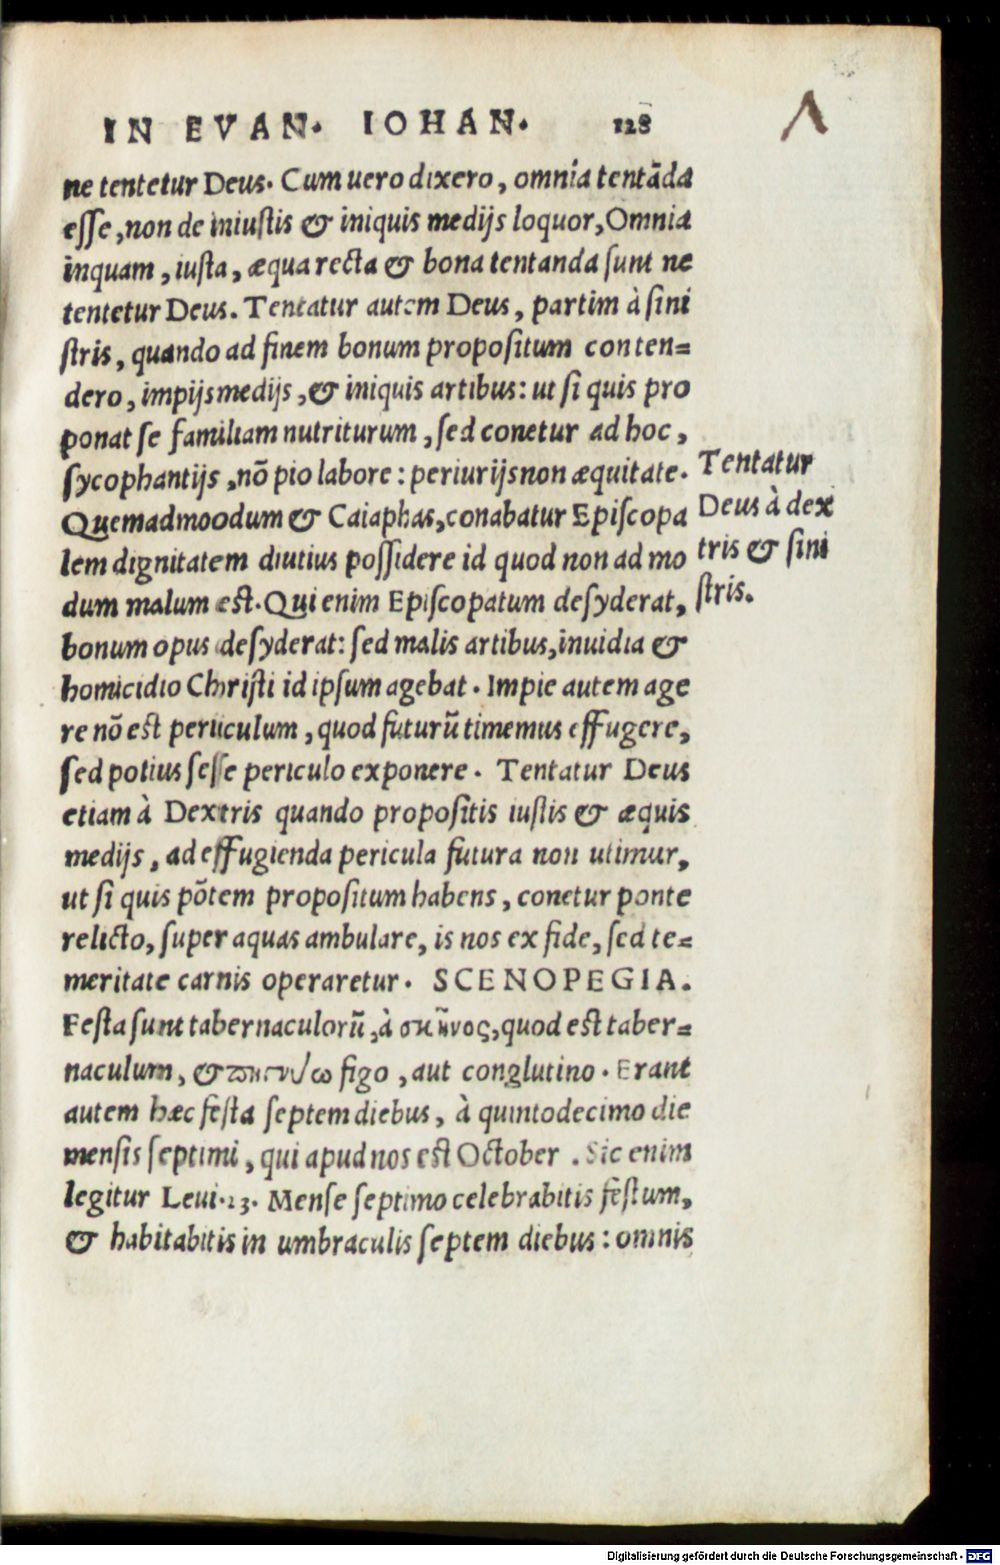 IN EVAN. IOHAN. 128
ne tentetur Deus. Cum uero dixero, omnia tentāda
esse, non de iniustis & iniquis medijs loquor, Omnia
inquam, iusta, æqua recta & bona tentanda sunt ne
tentetur Deus. Tentatur autem Deus, partim à sini
stris, quando ad finem bonum propositum conten=
dero, impijs medijs, & iniquis artibus: ut si quis pro
ponat se familiam nutriturum, sed conetur ad hoc,
sycophantijs, nō pio labore: periurijs non æquitate.
Quemadmoodum & Caiaphas, conabatur Episcopa
lem dignitatem diutius possidere id quod non ad mo
dum malum est. Qui enim Episcopatum desyderat,
bonum opus desyderat: sed malis artibus, inuidia &
homicidio Christi id ipsum agebat. Impie autem age
re nō est periiculum, quod futurū timemus effugere,
sed potius sesse periculo exponere. Tentatur Deus
etiam à Dextris quando propositis iustis & æquis
medijs, ad effugienda pericula futura non utimur,
ut si quis pōtem propositum habens, conetur ponte
relicto, super aquas ambulare, is nos ex fide, sed te=
meritate carnis operaretur. SCENOPEGIA.
Festa sunt tabernaculorū, à σκῆνος, quod est taber=
naculum, & figo, aut conglutino. Erant
autem hæc festa septem diebus, à quintodecimo die
mensis septimi, qui apud nos est October. Sic enim
legitur Leui. 23. Mense septimo celebrabitis festum,
& habitabitis in umbraculis septem diebus: omnis
Tentatur
Deus à dex
tris & sini
stris.
Digitalisierung gefördert durch die Deutsche Forschungsgemeinschaft - DFG